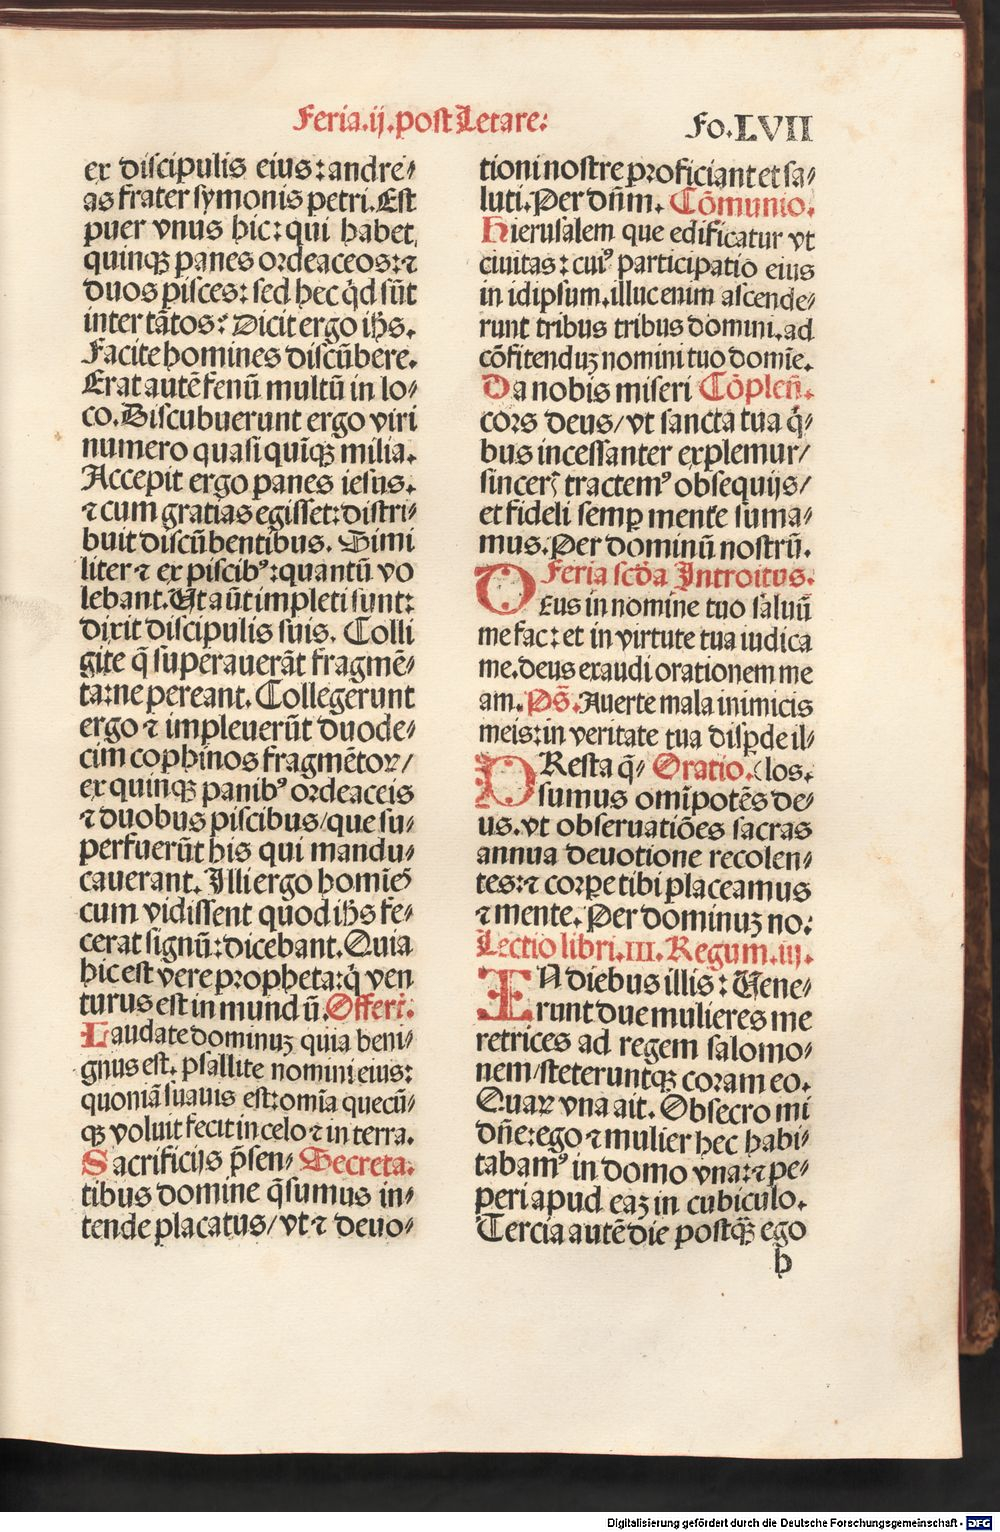 Feria.ij.post Letare:
Fo.LVII
ex discipulis eius: andre⸗
as frater symonis petri. Est
puer vnus hic: qui habet
quinqꝫ panes ordeaceos: ⁊
duos pisces: sed hec qͥd sūt
inter tātos? Dicit ergo ihs.
Facite homines discūbere.
Erat autē fenū multū in lo⸗
co. Discubuerunt ergo viri
numero quasi quīqꝫ milia.
Accepit ergo panes iesus.
⁊ cum gratias egisset: distri⸗
buit discūbentibus. Simi
liter ⁊ ex piscibꝰ: quantū vo
lebant. Ut aūt impleti sunt:
dixit discipulis suis. Colli
gite q̄ superauerāt fragmē⸗
ta: ne pereant. Collegerunt
ergo ⁊ impleuerūt duode⸗
cim cophinos fragmētoꝝ/
ex quinqꝫ panibꝰ ordeaceis
⁊ duobus piscibus/ que su⸗
perfuerūt his qui mandu⸗
cauerant. Illi ergo homīes
cum vidissent quod ihs fe⸗
cerat signū: dicebant. Quia
hic est vere propheta: qͥ ven
turus est in mundū. Offert̄.
Laudate dominuꝫ quia beni⸗
gnus est. psallite nomini eius:
quoniā suauis est: omīa quecū⸗
qꝫ voluit fecit in celo ⁊ in terra.
Sacrificijs p̄sen⸗ Secreta.
tibus domine q̄sumus in⸗
tende placatus/ vt ⁊ deuo⸗
tioni nostre proficiant et sa⸗
luti. Per dn̄m. Cōmunio.
Hierusalem que edificatur vt
ciuitas: cuiꝰ participatio eius
in idipsum. illuc enim ascende⸗
runt tribus tribus domini. ad
cōfitenduꝫ nomini tuo domīe.
Da nobis miseri Cōplen̄.
cors deus/ vt sancta tua qͥ⸗
bus incessanter explemur/
sincerꝭ tractemꝰ obsequijs/
et fideli semꝑ mente suma⸗
mus. Per dominū nostrū.
Feria scd̄a Introitus.
Deus in nomine tuo saluū
me fac: et in virtute tua iudica
me. deus exaudi orationem me
am. Ps̄. Auerte mala inimicis
meis: in veritate tua disꝑde il⸗
PResta q̄⸗ Oratio. (los.
sumus omīpotēs de⸗
us. vt obseruatiōes sacras
annua deuotione recolen⸗
tes: ⁊ corꝑe tibi placeamus
⁊ mente. Per dominuꝫ no.:
Lectio libri. III. Regum. iij.
IN diebus illis: Uene⸗
runt due mulieres me
retrices ad regem salomo⸗
nem/ steteruntqꝫ coram eo.
Quaꝝ vna ait. Obsecro mi
dn̄e: ego ⁊ mulier hec habi⸗
tabamꝰ in domo vna: ⁊ pe⸗
peri apud eaꝫ in cubiculo.
Tercia autē die postqꝫ̄ ego
h
Digitalisierung gefördert durch die Deutsche Forschungsgemeinschaft - DFG